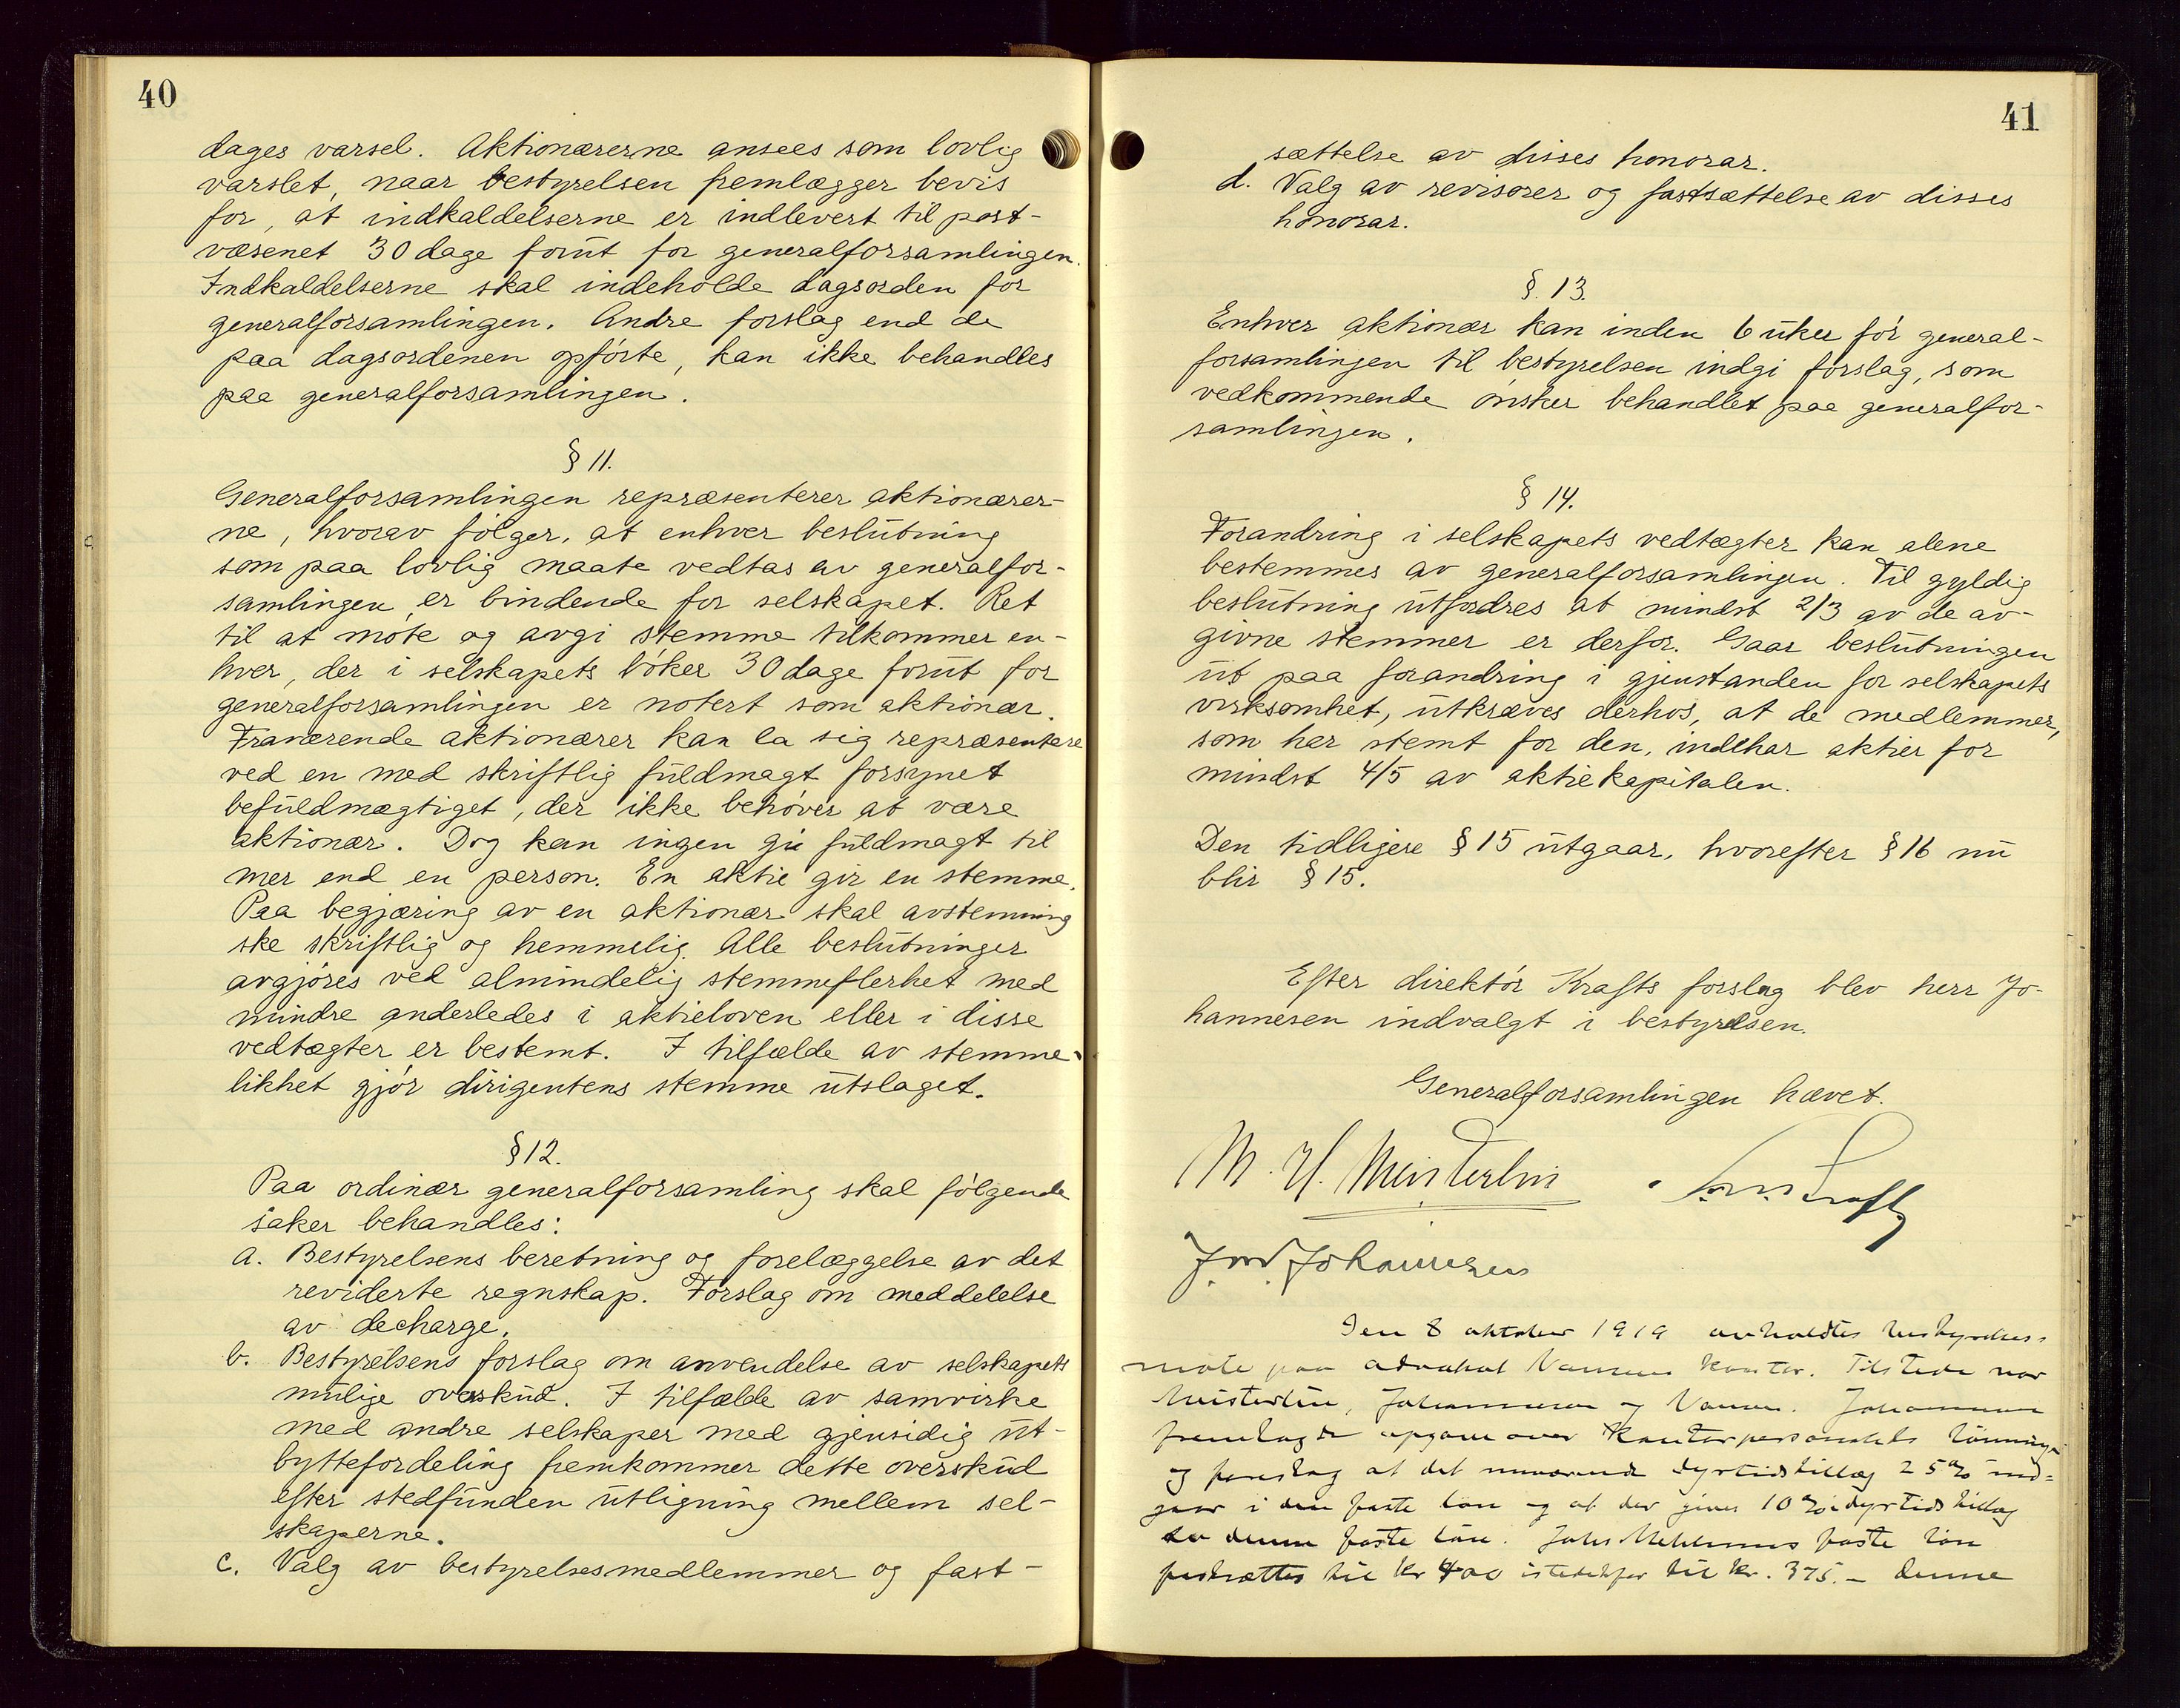 40
dages varsel. Aktionærerne ansees som lovlig
varslet, naar bestyrelsen fremlægger bevis
for, at indkaldelserne er indlevert til post-
væsenet 30 dage forut for generalforsamlingen.
Indkaldelserne skal indeholde dagsorden for
generalforsamlingen. Andre forslag end de
paa dagsordenen opførte, kan ikke behandles
paa generalforsamlingen.
§ 11.
Generalforsamlingen repræsenterer aktionærer-
ne, hvorav følger, at enhver beslutning
som paa lovlig maate vedtas av generalfor-
samlingen er bindende for selskapet. Ret
til at møte og avgi stemme tilkommer en-
hver, der i selskapets bøker 30 dage forut for
generalforsamlingen er notert som aktionær.
Fraværende aktionærer kan la sig repræsentere
ved en med skriftlig fuldmagt forsynet
befuldmægtiget, der ikke behøver at være
aktionær. Dog kan ingen gi fuldmagt til
mer end en person. En aktie gir en stemme.
Paa begjæring av en aktionær skal avstemning
ske skriftlig og hemmelig. Alle beslutninger
avgjøres ved almindelig stemmeflerhet med
mindre anderledes i aktieloven eller i disse
vedtægter er bestemt. I tilfælde av stemme-
likhet gjør dirigentens stemme utslaget.
§ 12.
Paa ordinær generalforsamling skal følgende
saker behandles:
a. Bestyrelsens beretning og forelæggelse av det
reviderte regnskap. Forslag om meddelelse
av decharge.
b. Bestyrelsens forslag om anvendelse av selskapets
mulige overskud. I tilfælde av samvirke
med andre selskaper med gjensidig ut-
byttefordeling fremkommer dette overskud
efter stedfunden utligning mellem sel-
skaperne.
c. Valg av bestyrelsesmedlemmer og fast-
41
sættelse av disses honorar.
d. Valg av revisorer og fastsættelse av disses
honorar.
§. 13.
Enhver aktionær kan inden 6 uker før general-
forsamlingen til bestyrelsen indgi forslag, som
vedkommende ønsker behandlet paa generalfor-
samlingen.
§ 14.
Forandring i selskapets vedtægter kan alene
bestemmes av generalforsamlingen. Til gyldig
beslutning utfordres at mindst 2/3 av de av-
givne stemmer er derfor. Gaar beslutningen
ut paa forandring i gjenstanden for selskapets
virksomhet, utkræves derhos, at de medlemmer,
som har stemt for den, indehar aktier for
mindst 4/5 av aktiekapitalen.
Den tidligere § 15 utgaar, hvorefter § 16 nu
blir § 15.
Efter direktør Krafts forslag blev herr Jo-
hannesen indvalgt i bestyrelsen.
Generalforsamlingen hævet.
M. H. Meisterlin
Kraft
J.W. Johannesen
Den 8 oktober 1919 avholdtes bestyrelses-
møte paa advokat Nansens kontor. Tilstede var
Meisterlin, Johannesen og Nansen. Johannesen
fremlagde opgave over kontorpersonalets lønninger
og foreslog at det nuværende dyrtidstillæg 25% ind-
gaar i den faste løn og at der gives 10% dyrtidstillæg
denne faste løn. faste løn
fastsættes til kr 400 istedetfor til kr. 375.- denne